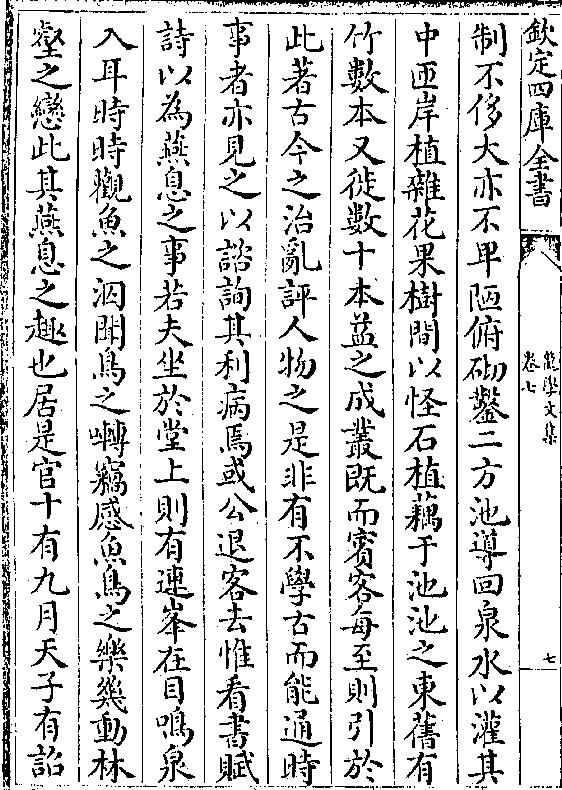 欽定四庫全書
龍學文集
卷七
七
制不侈大亦不卑陋俯砌鑿二方池導回泉水以灌其
中匝岸植雜花果樹間以怪石植藕于池池之東舊有
竹數本又徙數十本益之成叢既而賓客每至則引於
此著古今之治亂評人物之是非有不學古而能通時
事者亦見之以諮詢其利病焉或公退客去惟看書賦
詩以為燕息之事若夫坐於堂上則有連峯在目鳴泉
入耳時時觀魚之泅聞鳥之囀竊感魚鳥之樂幾動林
壑之戀此其燕息之趣也居是官十有九月天子有詔